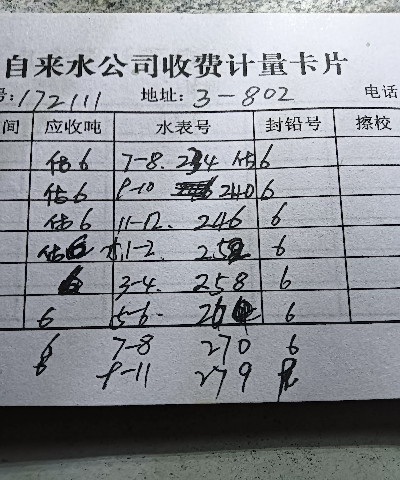 自来水公司收费计量卡片
号:172111 地址: 3-802 电话
间 应收吨 水表号 封铅号 擦校
估6 7-8. 234 估6
估6 9-10 240 6
估6 11-12. 246 6
估6 1-2. 252 6
6 3-4. 258 6
6 5-6. 264 6
6 7-8 270 6
8 9-11 279